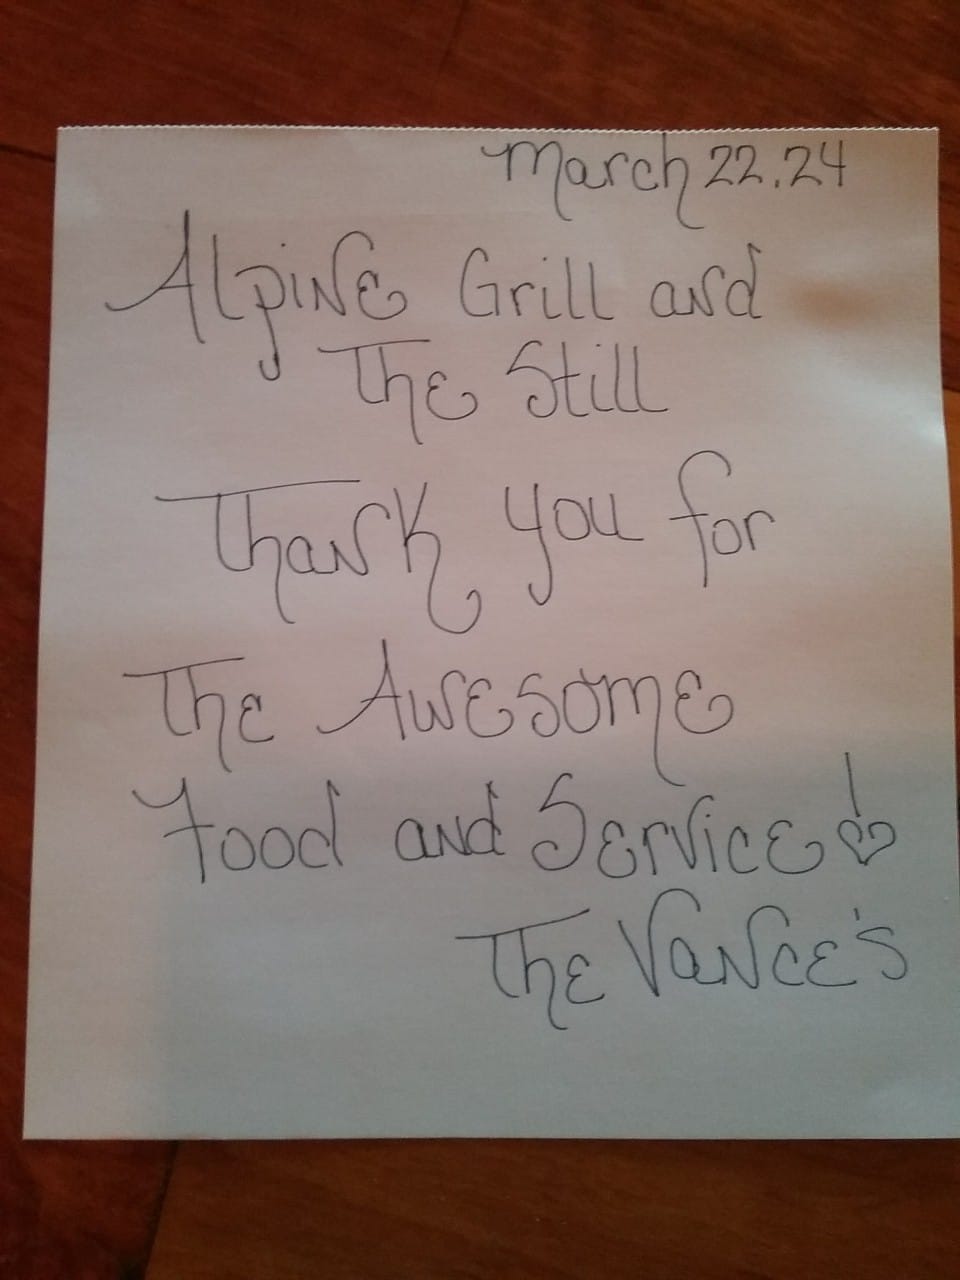 March 22.24
Alpine Grill and
The Still
Thank you for
The Awesome
Food and Service!
The Vance's